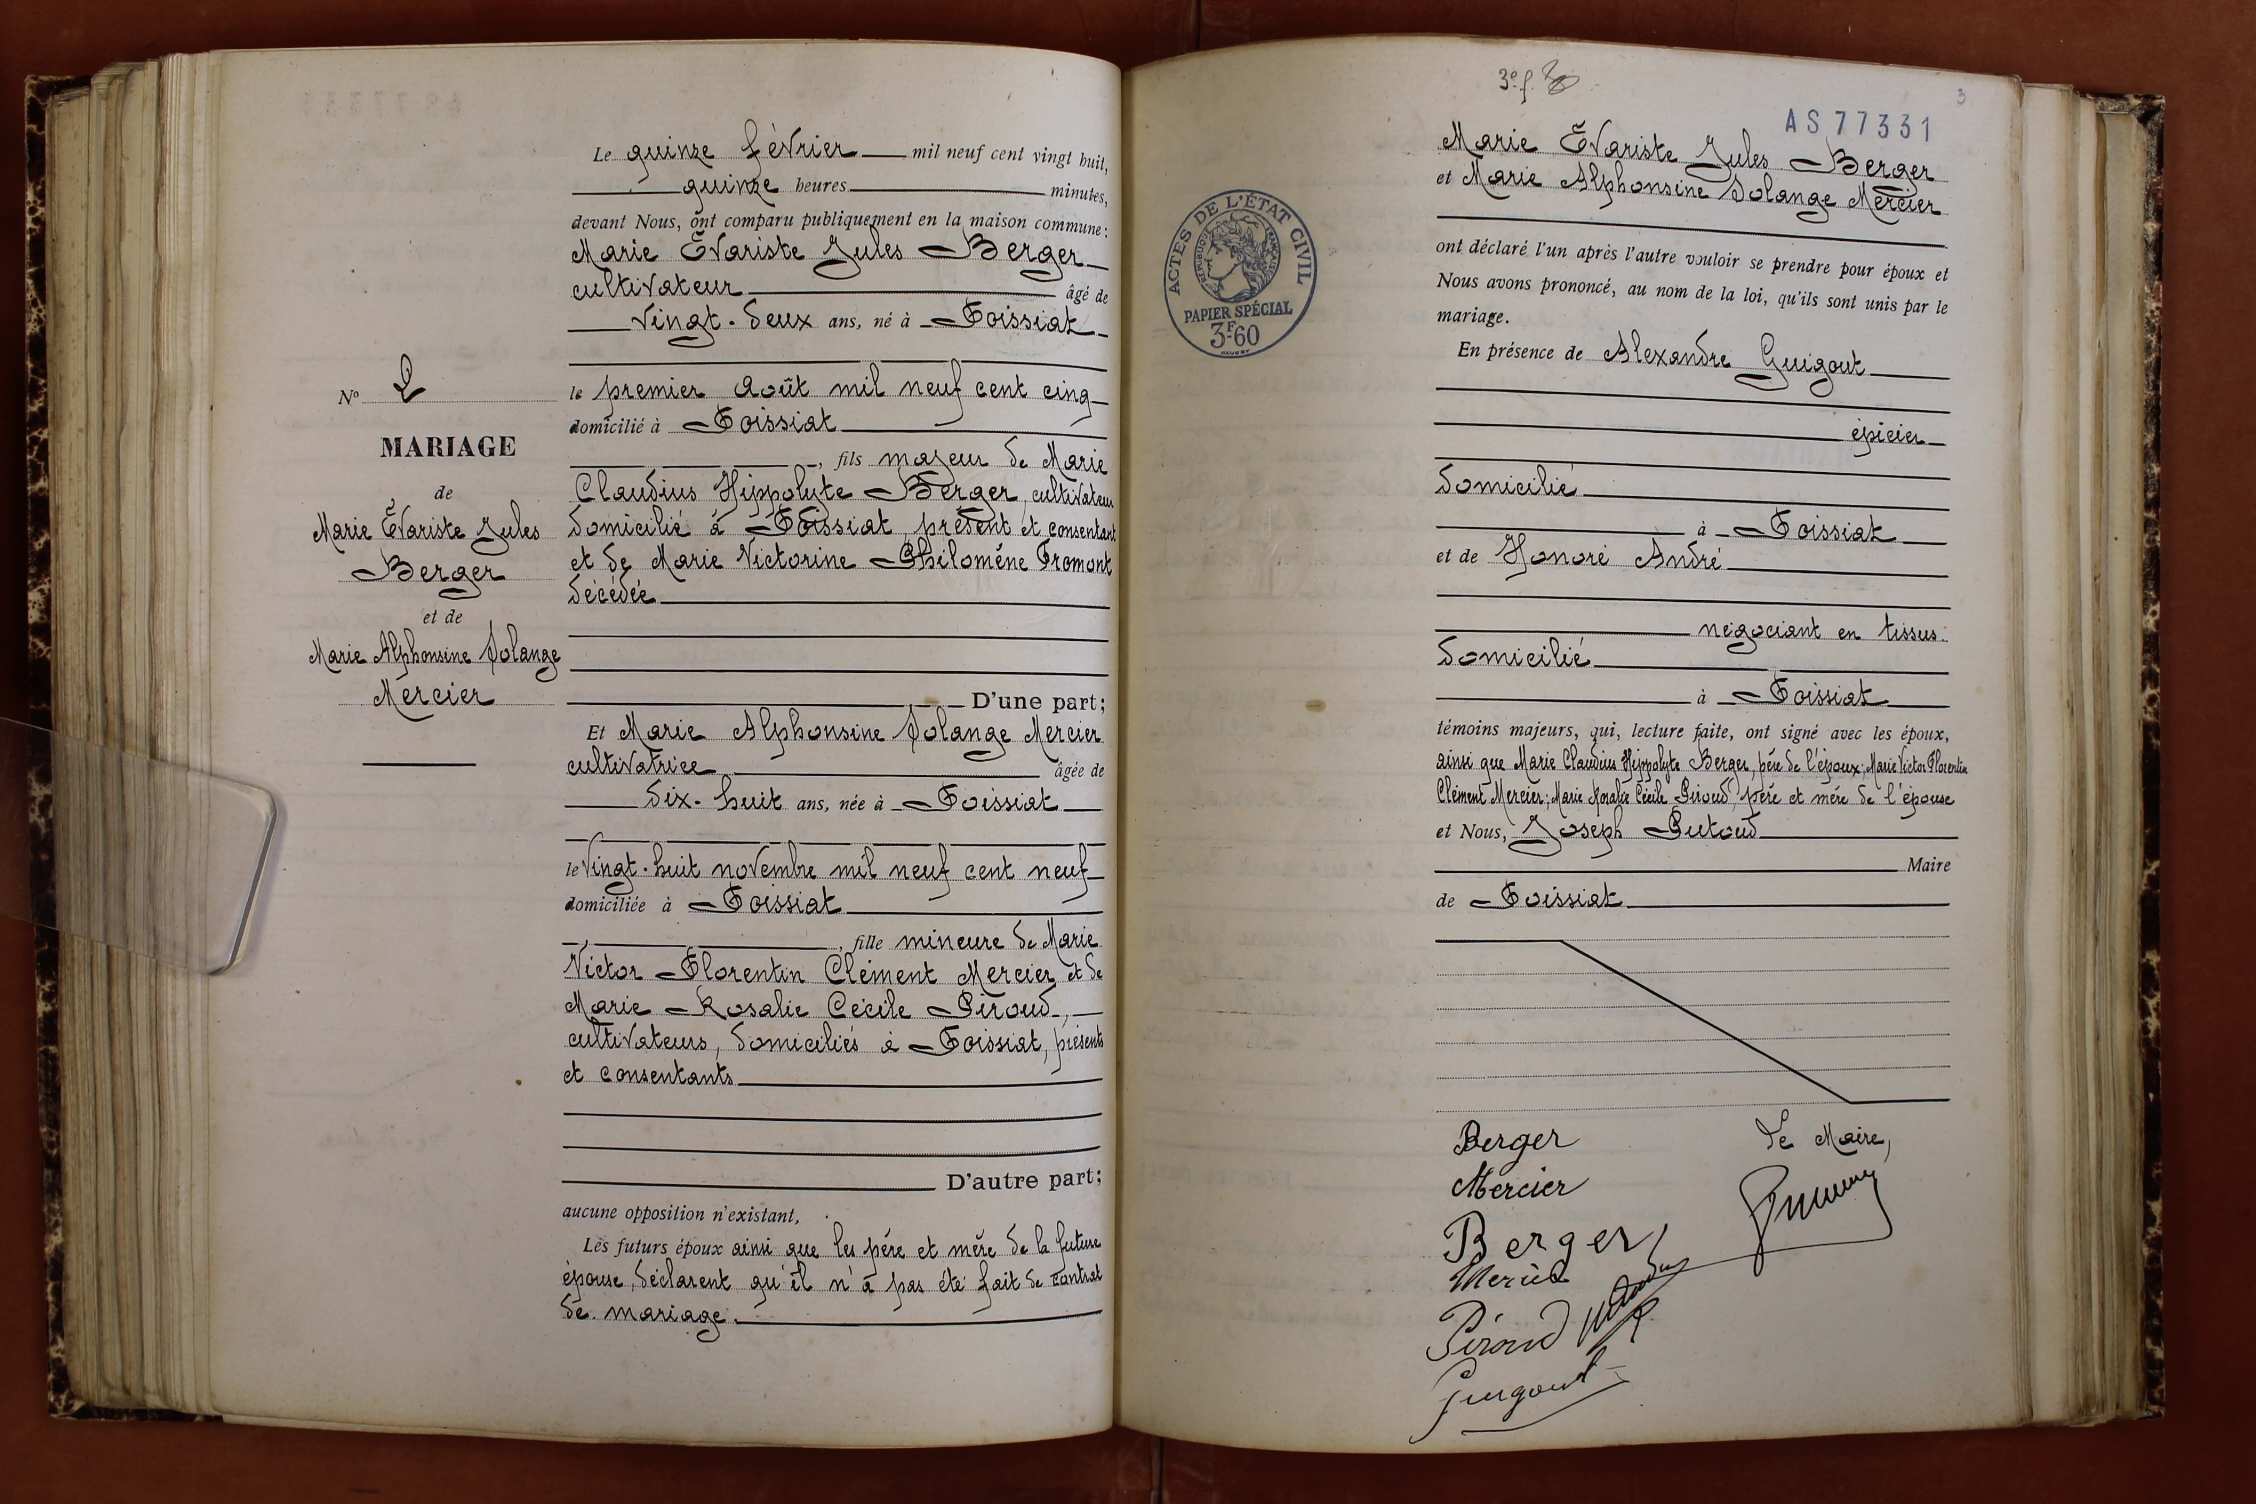 Le quinze février mil neuf cent vingt huit,
quinze heures minutes,
devant Nous, ont comparu publiquement en la maison commune:
Marie Évariste Jules Berger
cultivateur âgé de
vingt-deux ans, né à Foissiat
le premier août mil neuf cent cinq
domicilié à Foissiat
, fils majeur de Marie
Claudius Hippolyte Berger, cultivateur
domicilié à Foissiat, présent et consentant
et de Marie Victorine Philomène Fromont
décédée
D'une part;
N° 2
MARIAGE
de
Marie Évariste Jules
Berger
et de
Marie Alphonsine Solange
Mercier
Et Marie Alphonsine Solange Mercier
cultivatrice âgée de
dix-huit ans, née à Foissiat
le vingt-huit novembre mil neuf cent neuf
domiciliée à Foissiat
, fille mineure de Marie
Victor Florentin Clément Mercier et de
Marie Rosalie Cécile Piroud,
cultivateurs, domiciliés à Foissiat, présents
et consentants
D'autre part;
aucune opposition n'existant,
Les futurs époux ainsi que les père et mère de la future
épouse, déclarent qu'il n'a pas été fait de contrat
de mariage.
3e f.
3
AS 77331
ACTES DE L'ÉTAT CIVIL
RÉPUBLIQUE FRANÇAISE
PAPIER SPÉCIAL
3F60
Marie Évariste Jules Berger
et Marie Alphonsine Solange Mercier
ont déclaré l'un après l'autre vouloir se prendre pour époux et
Nous avons prononcé, au nom de la loi, qu'ils sont unis par le
mariage.
En présence de Alexandre Guigout
épicier
domicilié
à Foissiat
et de Honoré André
négociant en tissus
domicilié
à Foissiat
témoins majeurs, qui, lecture faite, ont signé avec les époux,
ainsi que Marie Claudius Hippolyte Berger, père de l'époux; Marie Victor Florentin
Clément Mercier; Marie Rosalie Cécile Piroud, père et mère de l'épouse
et Nous, Joseph Putoud
Maire
de Foissiat
Berger
Le Maire,
Mercier
Berger
Mercier
Piroud
Guigout